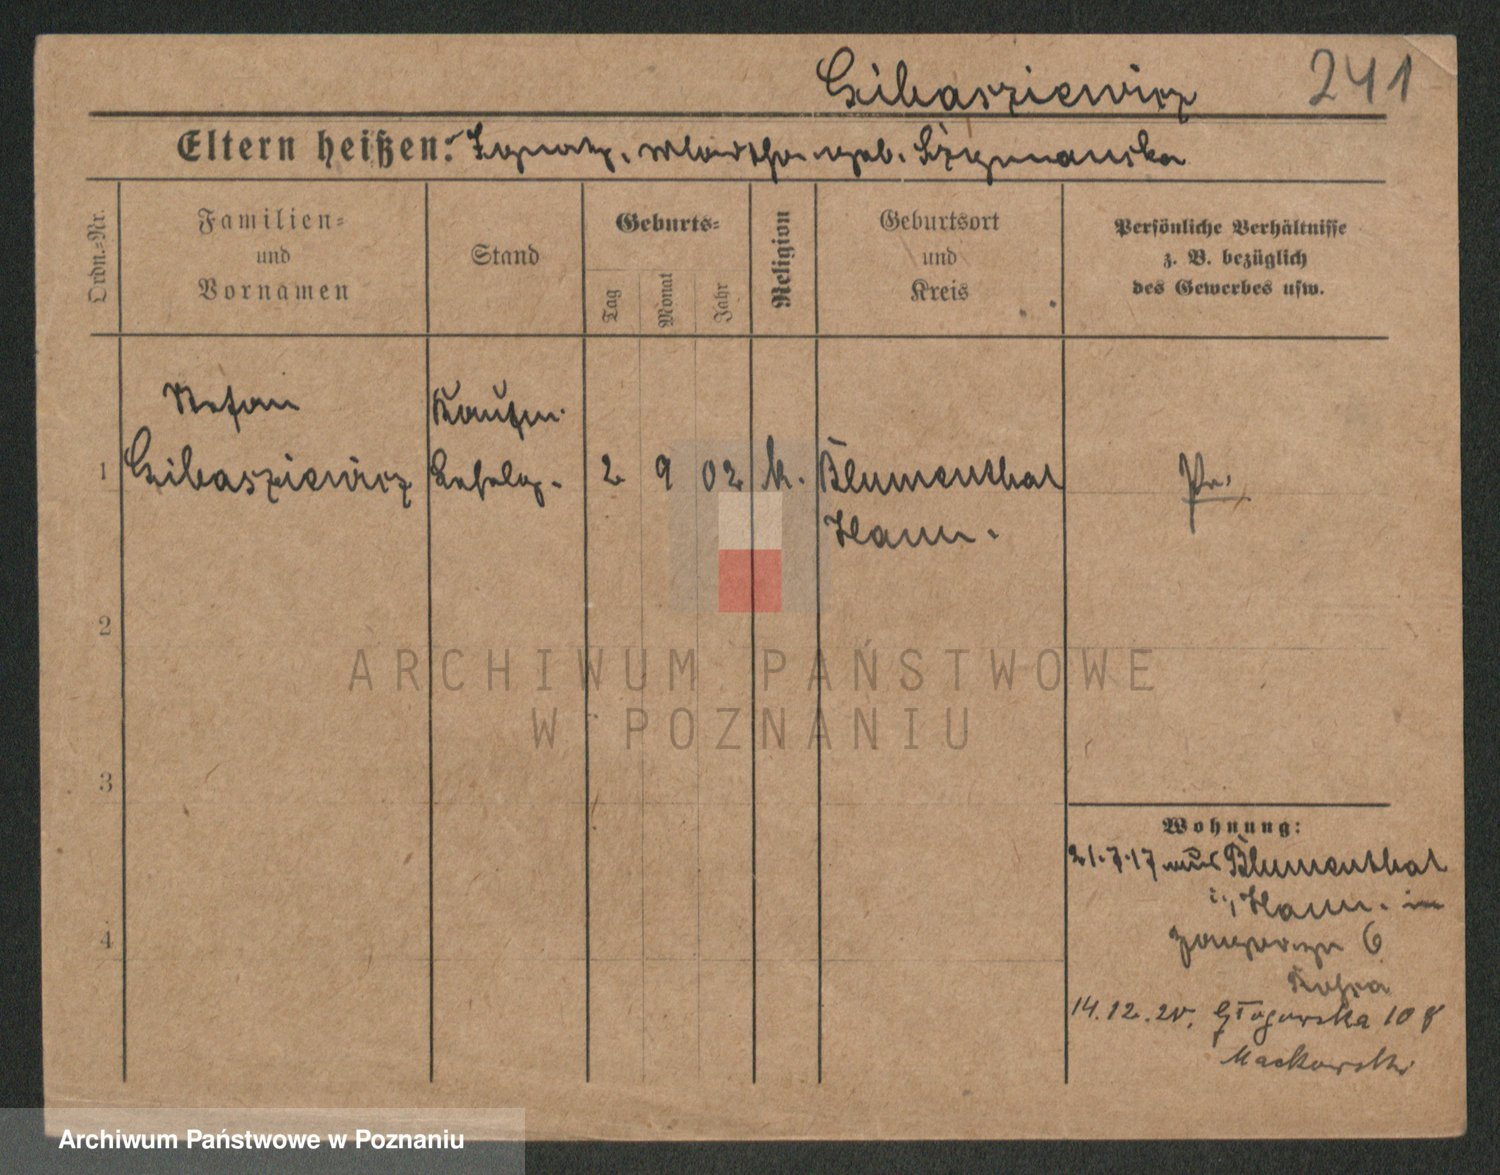 Cibasziewicz 241
Eltern heißen: Ignatz, Martha geb. Szymanska
Ordn.=Nr.
Familien=
und
Vornamen
Stand
Geburts=
Tag
Monat
Jahr
Religion
Geburtsort
und
Kreis
Persönliche Verhältnisse
z. B. bezüglich
des Gewerbes usw.
Stefan Kaufm.
1 Cibasziewicz 2 9 02 k. Blumenthal Pr.
Hann.
2
ARCHIWUM PAŃSTWOWE
W POZNANIU
3
Wohnung:
21.7.17 aus Blumenthal
i/Hann. in
6
4
14.12.20. Głogowska 108
Mackowski
Archiwum Państwowe w Poznaniu